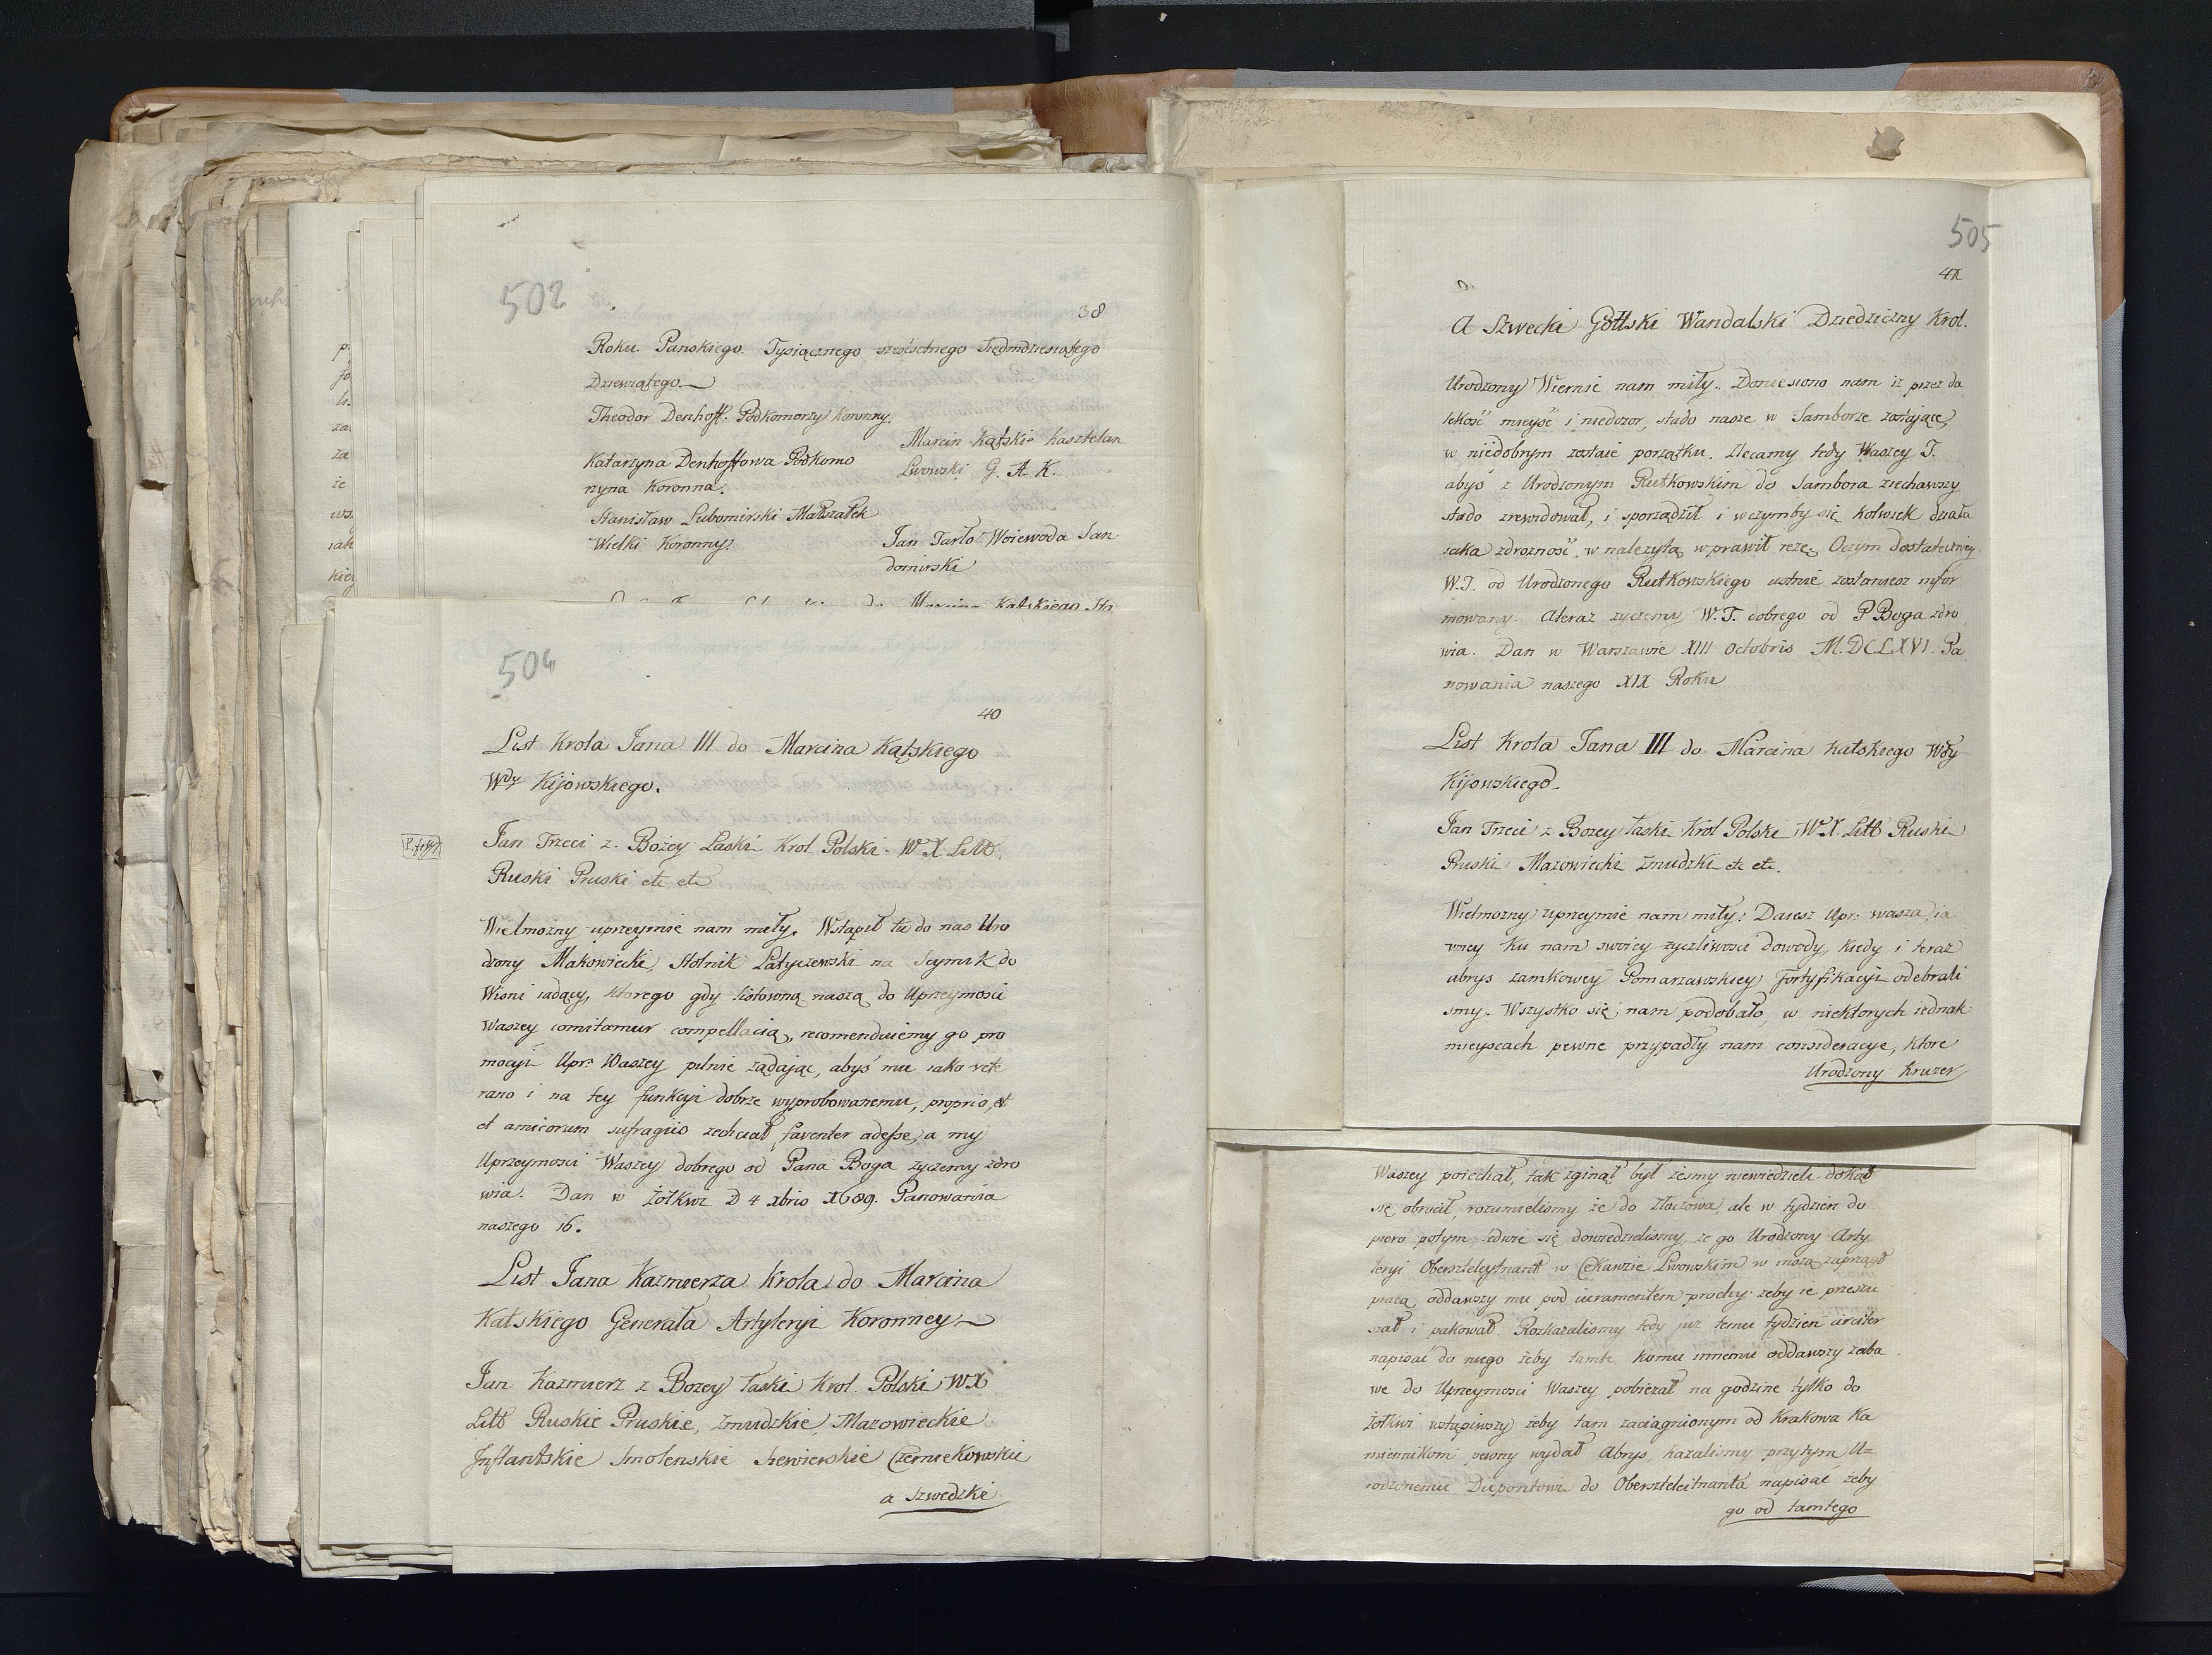 502
38
Roku. Pańskiego. Tysiącznego sześsetnego siedmdziesiątego
Dziewiątego.
Theodor Denhoff. Podkomorzy Koronny.
Marcin Kątskie Kasztelan
Lwowski G. A. K.
Katarzyna Denhoffowa Podkomo
rzyna Koronna.
Stanisław Lubomirski Marszałek
Wielki Koronny.
Jan Tarło Woiewoda San
domirski
504
40
List Krola Jana III do Marcina Kątskiego
Wdy Kijowskiego.
Jan Trzeci z. Bożey Laski Krol. Polski. W X Litt.
Ruski Pruski etc etc
Wielmożny uprzeymie nam miły. Wstąpił tu do nas Uro
dzony Makowiecki, Stolnik Latyczewski na Seymik do
Wisni iadący, ktorego gdy listowną naszą do Uprzeymosci
Waszey comitamur compellacią, recomenduiemy go pro
mocyi Upr: Waszey pilnie ządaiąc, abyś mu iako vete
rano i na tey funkcyi dobrze wyprobowanemu, proprio, et
et amicorum sufragiis zechciał, faventer adesse, a my
Uprzeymosci Waszey dobrego od Pana Boga życzemy zdro
wia. Dan w Żołkwi D 4 xbris 1689. Panowania
naszego 16.
List Jana Kazmierza Krola do Marcina
Katskiego Generała Artyleryi Koronney
Jan Kazmierz z Bozey łaski Krol. Polski WX
Litt Ruskie Pruskie, Zmudzkie, Mazowieckie
Inflantskie Smolenskie Siewierskie Czerniekowskie
a Szwedzkie
505
41
A Szwecki Gottski Wandalski Dziedziczny Krol.
Urodzony Wiernie nam miły. Doniesiono nam iż przez da
lekość mieysc i niedozor, stado nasze w Samborze zostaiące,
w niedobrym zostaie porządku. Zlecamy tedy Waszey T.
abyś z Urodzonym Rutkowskim do Sambora ziechawszy
stado zrewidował, i sporządził i wczymby się kolwiek działa
iaka zdrozność, w nalezytą wprawił rezę. Oczym dostateczniey
W.T. od Urodzonego Rutkowskiego ustnie zostaniesz infor
mowany. Ateraz zyczemy W.T. dobrego od P Boga zdro
wia. Dan w Warszawie XIII Octobris M.DCLXVI. Pa
nowania naszego XIX Roku
List Krola Jana III do Marcina Katskiego Wdy
Kijowskiego
Jan Trzeci z Bozey łaski Krol Polski W.X. Litt Ruski
Pruski Mazowiecki Zmudzki etc etc.
Wielmozny uprzeymie nam miły: Daiesz Upr: wasza ia
wney ku nam swoiey zyczliwosci dowody, kiedy i teraz
abrys zamkowey Pomarzawskiey Fortyfikacyi odebrali
smy. Wszystko się nam podobało, w niektorych iednak
mieyscach pewne przypadły nam consideracye, ktore
Urodzony Kruzer
Waszey poiechał, tak zginął był żesmy niewiedzieli dokąd
się obrocił, rozumielismy że do Złoczowa, ale w tydzien do
piero potym ledwie się dowiedzielismy, ze go Urodzony Arty
leryi Oberszteleytnant w Cekauzie Lwowskim w inszą zaprzągł
pracą oddawszy mu pod iuramentem prochy zeby ie przesu
szał i pakował. Rozkazalismy tedy juz temu tydzien circiter
napisać do niego żeby tamte komu innemu oddawszy zaba
we do Uprzeymosci Waszey pobiezał na godzine tylko do
Żołkwi wstąpiwszy żeby tam zaciągnionym od Krakowa Ka
miennikom pewny wydał Abrys, kazalismy przytym U=
rodzonemu Dupontowi do Obersztelejtnanta napisać żeby
go od tamtego